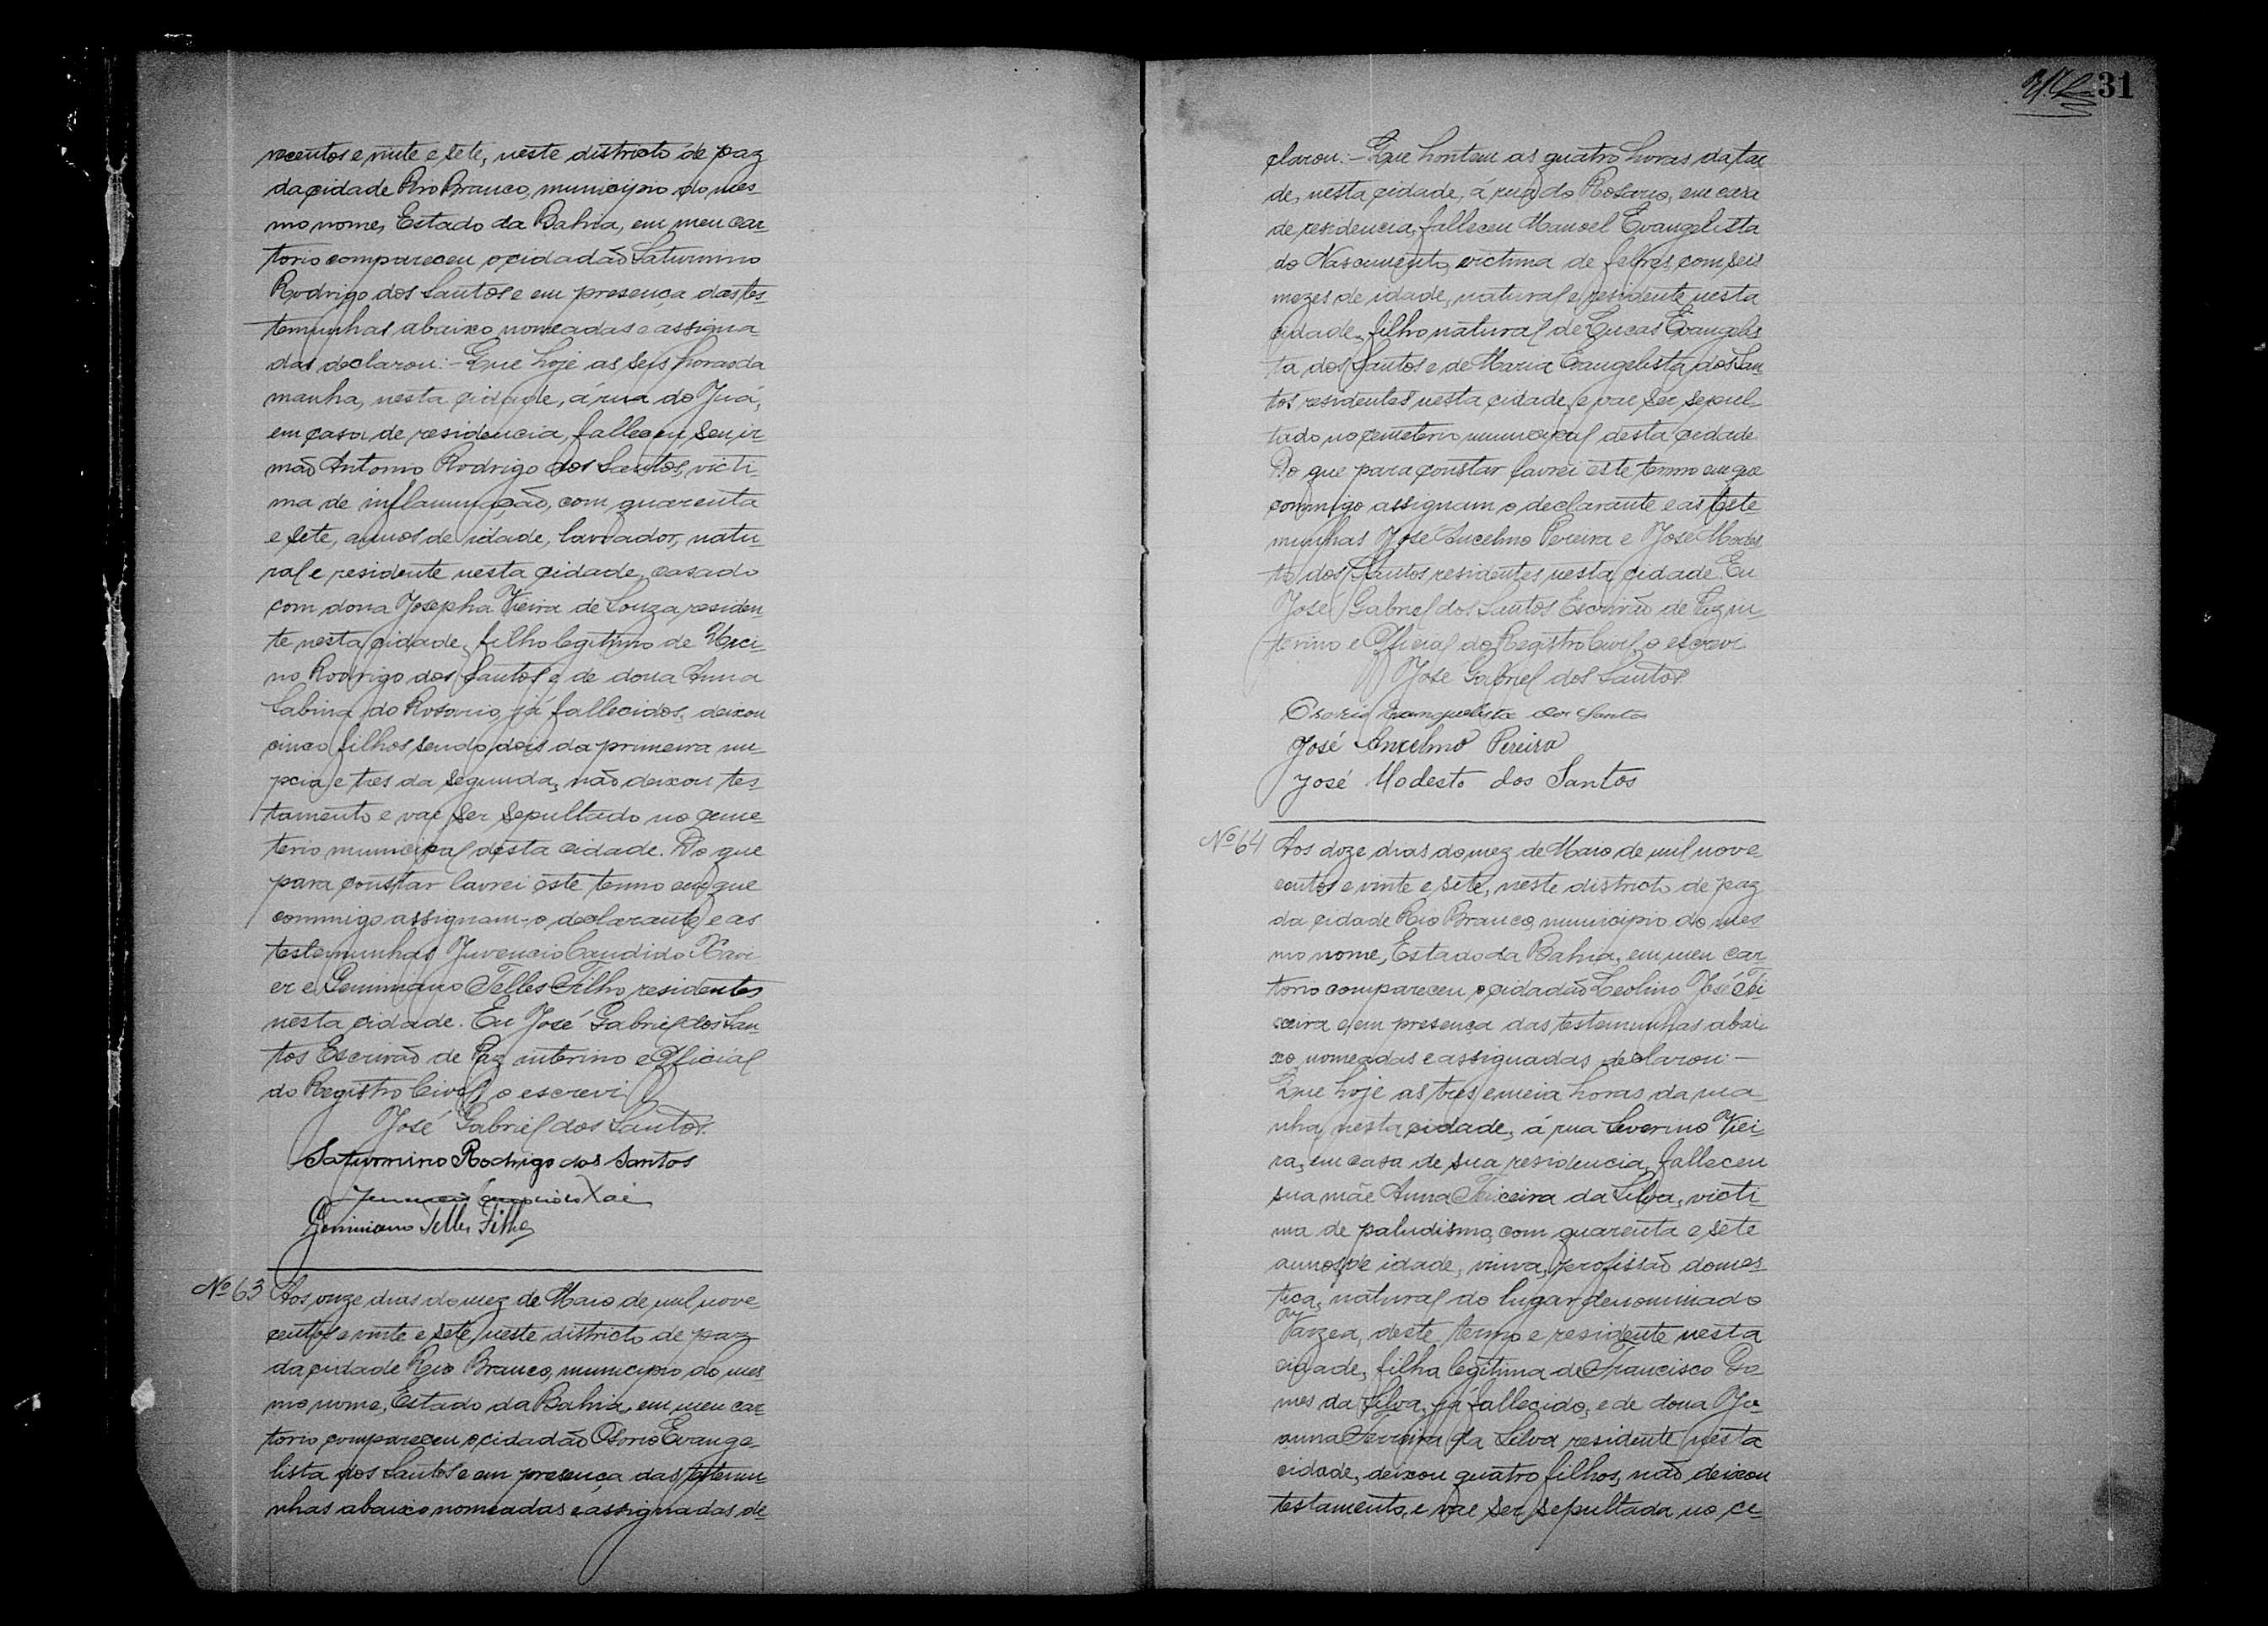 vecentos e vinte e sete, neste districto de paz
da cidade Rio Branco, municipio do mes-
mo nome, Estado da Bahia, em meu car-
torio compareceu o cidadão Saturnino
Rodrigo dos Santos e em presença das tes-
temunhas abaixo nomeadas e assigna-
das declarou:- Que hoje as seis horas da
manha, nesta cidade, á rua do Juá,
em casa de residencia, falleceu seu ir-
mão Antonio Rodrigo dos Santos, victi-
ma de inflammação, com quarenta
e sete, annos de idade, lavrador, natu-
ral e residente nesta cidade, casado
com dona Josepha Vieira de Souza residen-
te nesta cidade, filho legitimo de
no Rodrigo dos Santos e de dona Anna
Sabina do Rosario, já fallecidos, deixou
cinco filhos sendo dois da primeira nu-
pcia e tres da segunda, não deixou tes-
tamento e vae ser sepultado no ceme-
terio municipal desta cidade. Do que
para constar lavrei este termo em que
commigo assignam o declarante e as
testemunhas Juvencio Candido Xavi-
er e Geminiano Telles Filho, residentes
nesta cidade. Eu José Gabriel dos San-
tos Escrivão de Paz interino e Official
do Registro Civil, o escrevi.
José Gabriel dos Santos.
Saturnino Rodrigo dos Santos
Geminiano Telles Filho
Nº 63 Aos onze dias do mez de Maio de mil nove-
centos e vinte e sete, neste districto de paz
da cidade Rio Branco, municipio do mes-
mo nome, Estado da Bahia, em meu car-
torio compareceu o cidadão Osorio Evange-
lista dos Santos e em presença das testemu-
nhas abaixo nomeadas e assignadas de-
31
clarou:- Que hontem as quatro horas da tar-
de, nesta cidade, á rua do Rosario, em casa
de residencia, falleceu Manoel Evangelista
do Nascimento, victima de febres, com seis
mezes de idade, natural e residente nesta
cidade, filho natural de Lucas Evangelis-
ta dos Santos e de Maria Evangelista dos San-
tos residentes nesta cidade, e vae ser sepul-
tado no cemeterio municipal desta cidade.
Do que para constar lavrei este termo em que
commigo assignam o declarante e as teste-
munhas José Ancelmo Pereira e José Modes-
to dos Santos residentes nesta cidade. Eu
José Gabriel dos Santos Escrivão de Paz in-
terino e Official do Registro Civil, o escrevi.
José Gabriel dos Santos.
Osorio Evangelista dos Santos
José Ancelmo Pereira
José Modesto dos Santos
Nº 64 Aos doze dias do mez de Maio de mil nove-
centos e vinte e sete, neste districto de paz
da cidade Rio Branco, municipio do mes-
mo nome, Estado da Bahia, em meu car-
torio compareceu o cidadão Leolino José Tei-
xeira e em presença das testemunhas abai-
xo nomeadas e assignadas declarou:-
Que hoje as tres e meia horas da ma-
nhã, nesta cidade, á rua Severino Viei-
ra, em casa de sua residencia, falleceu
sua mãe Anna Teixeira da Silva, victi-
ma de paludismo, com quarenta e sete
annos de idade, viuva, profissão domes-
tica, natural do lugar denominado
Varzea, deste termo e residente nesta
cidade, filha legitima de Francisco Go-
mes da Silva, já fallecido, e de dona Jo-
anna Ferreira da Silva residente nesta
cidade, deixou quatro filhos, não deixou
testamento, e vae ser sepultada no ce-